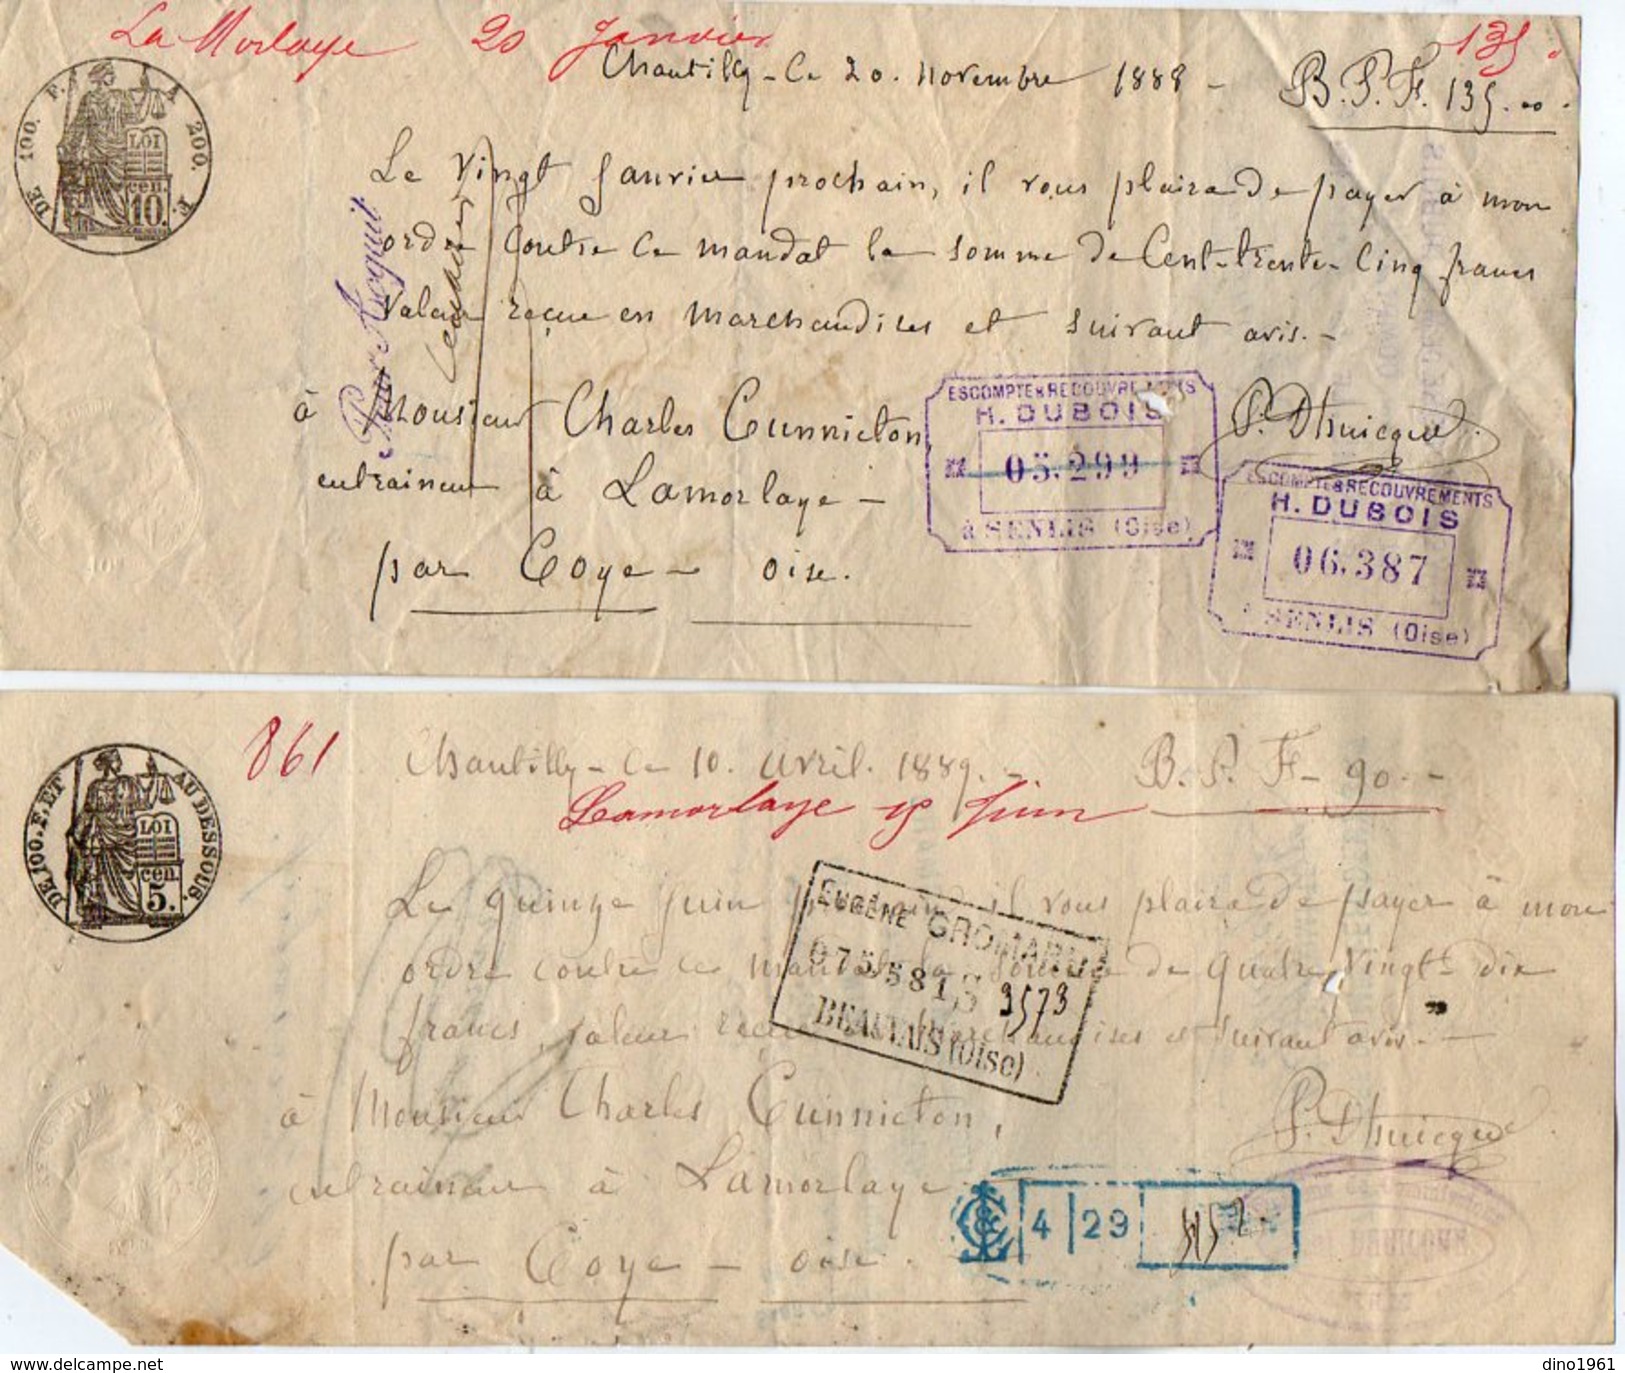 La Morlaye 20 Janvier 135.
Chantilly - Le 20. Novembre 1888 - B. P. F. 135.00.
DE 100. F. A 200. F.
LOI
cen.
10.
Le Vingt Janvier prochain, il vous plaira de payer à mon
ordre contre ce mandat la somme de Cent-trente-Cinq francs
valeur reçue en marchandises et suivant avis. -
Pour Acquit
à Monsieur Charles Cunnicton
entraineur à Lamorlaye -
par Coye - oise.
ESCOMPTE & RECOUVREMENTS
H. DUBOIS
05.299
à SENLIS (Oise)
P. Dhuicque
ESCOMPTE & RECOUVREMENTS
H. DUBOIS
06.387
à SENLIS (Oise)
861
Chantilly - Le 10. Avril. 1889. - B. P. F - 90. -
Lamorlaye 15 Juin
DE 100. F. ET AU DESSOUS.
LOI
cen.
5.
Le quinze Juin prochain, il vous plaira de payer à mon
ordre contre ce mandat la somme de Quatre Vingt dix
francs, valeur reçue en marchandises et suivant avis. -
EUGÈNE GROMARD
075581,5 3573
BEAUVAIS (Oise)
à Monsieur Charles Cunnicton,
entraineur à Lamorlaye
par Coye - oise.
P. Dhuicque
4 29
delcampe.net
dino1961